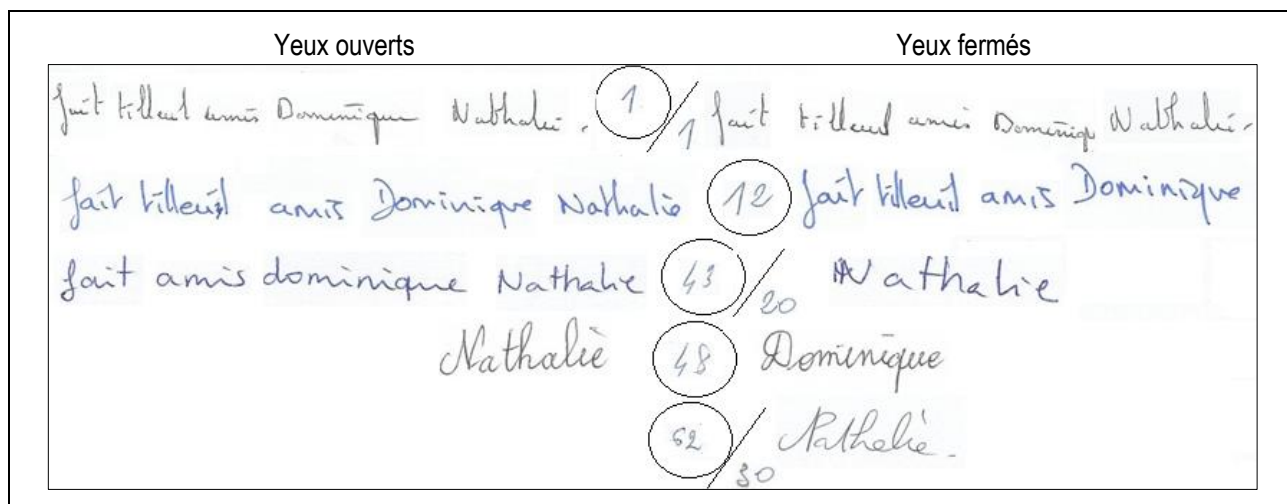 Yeux ouverts Yeux fermés
fait tilleul amis Dominique Nathalie. 1/1 fait tilleul amis Dominiq Nathalie.
fait tilleul amis Dominique Nathalie 12 fait tilleul amis Dominique
fait amis dominique Nathalie 43/20 Nathalie
Nathalie 48 Dominique
62/30 Nathalie.